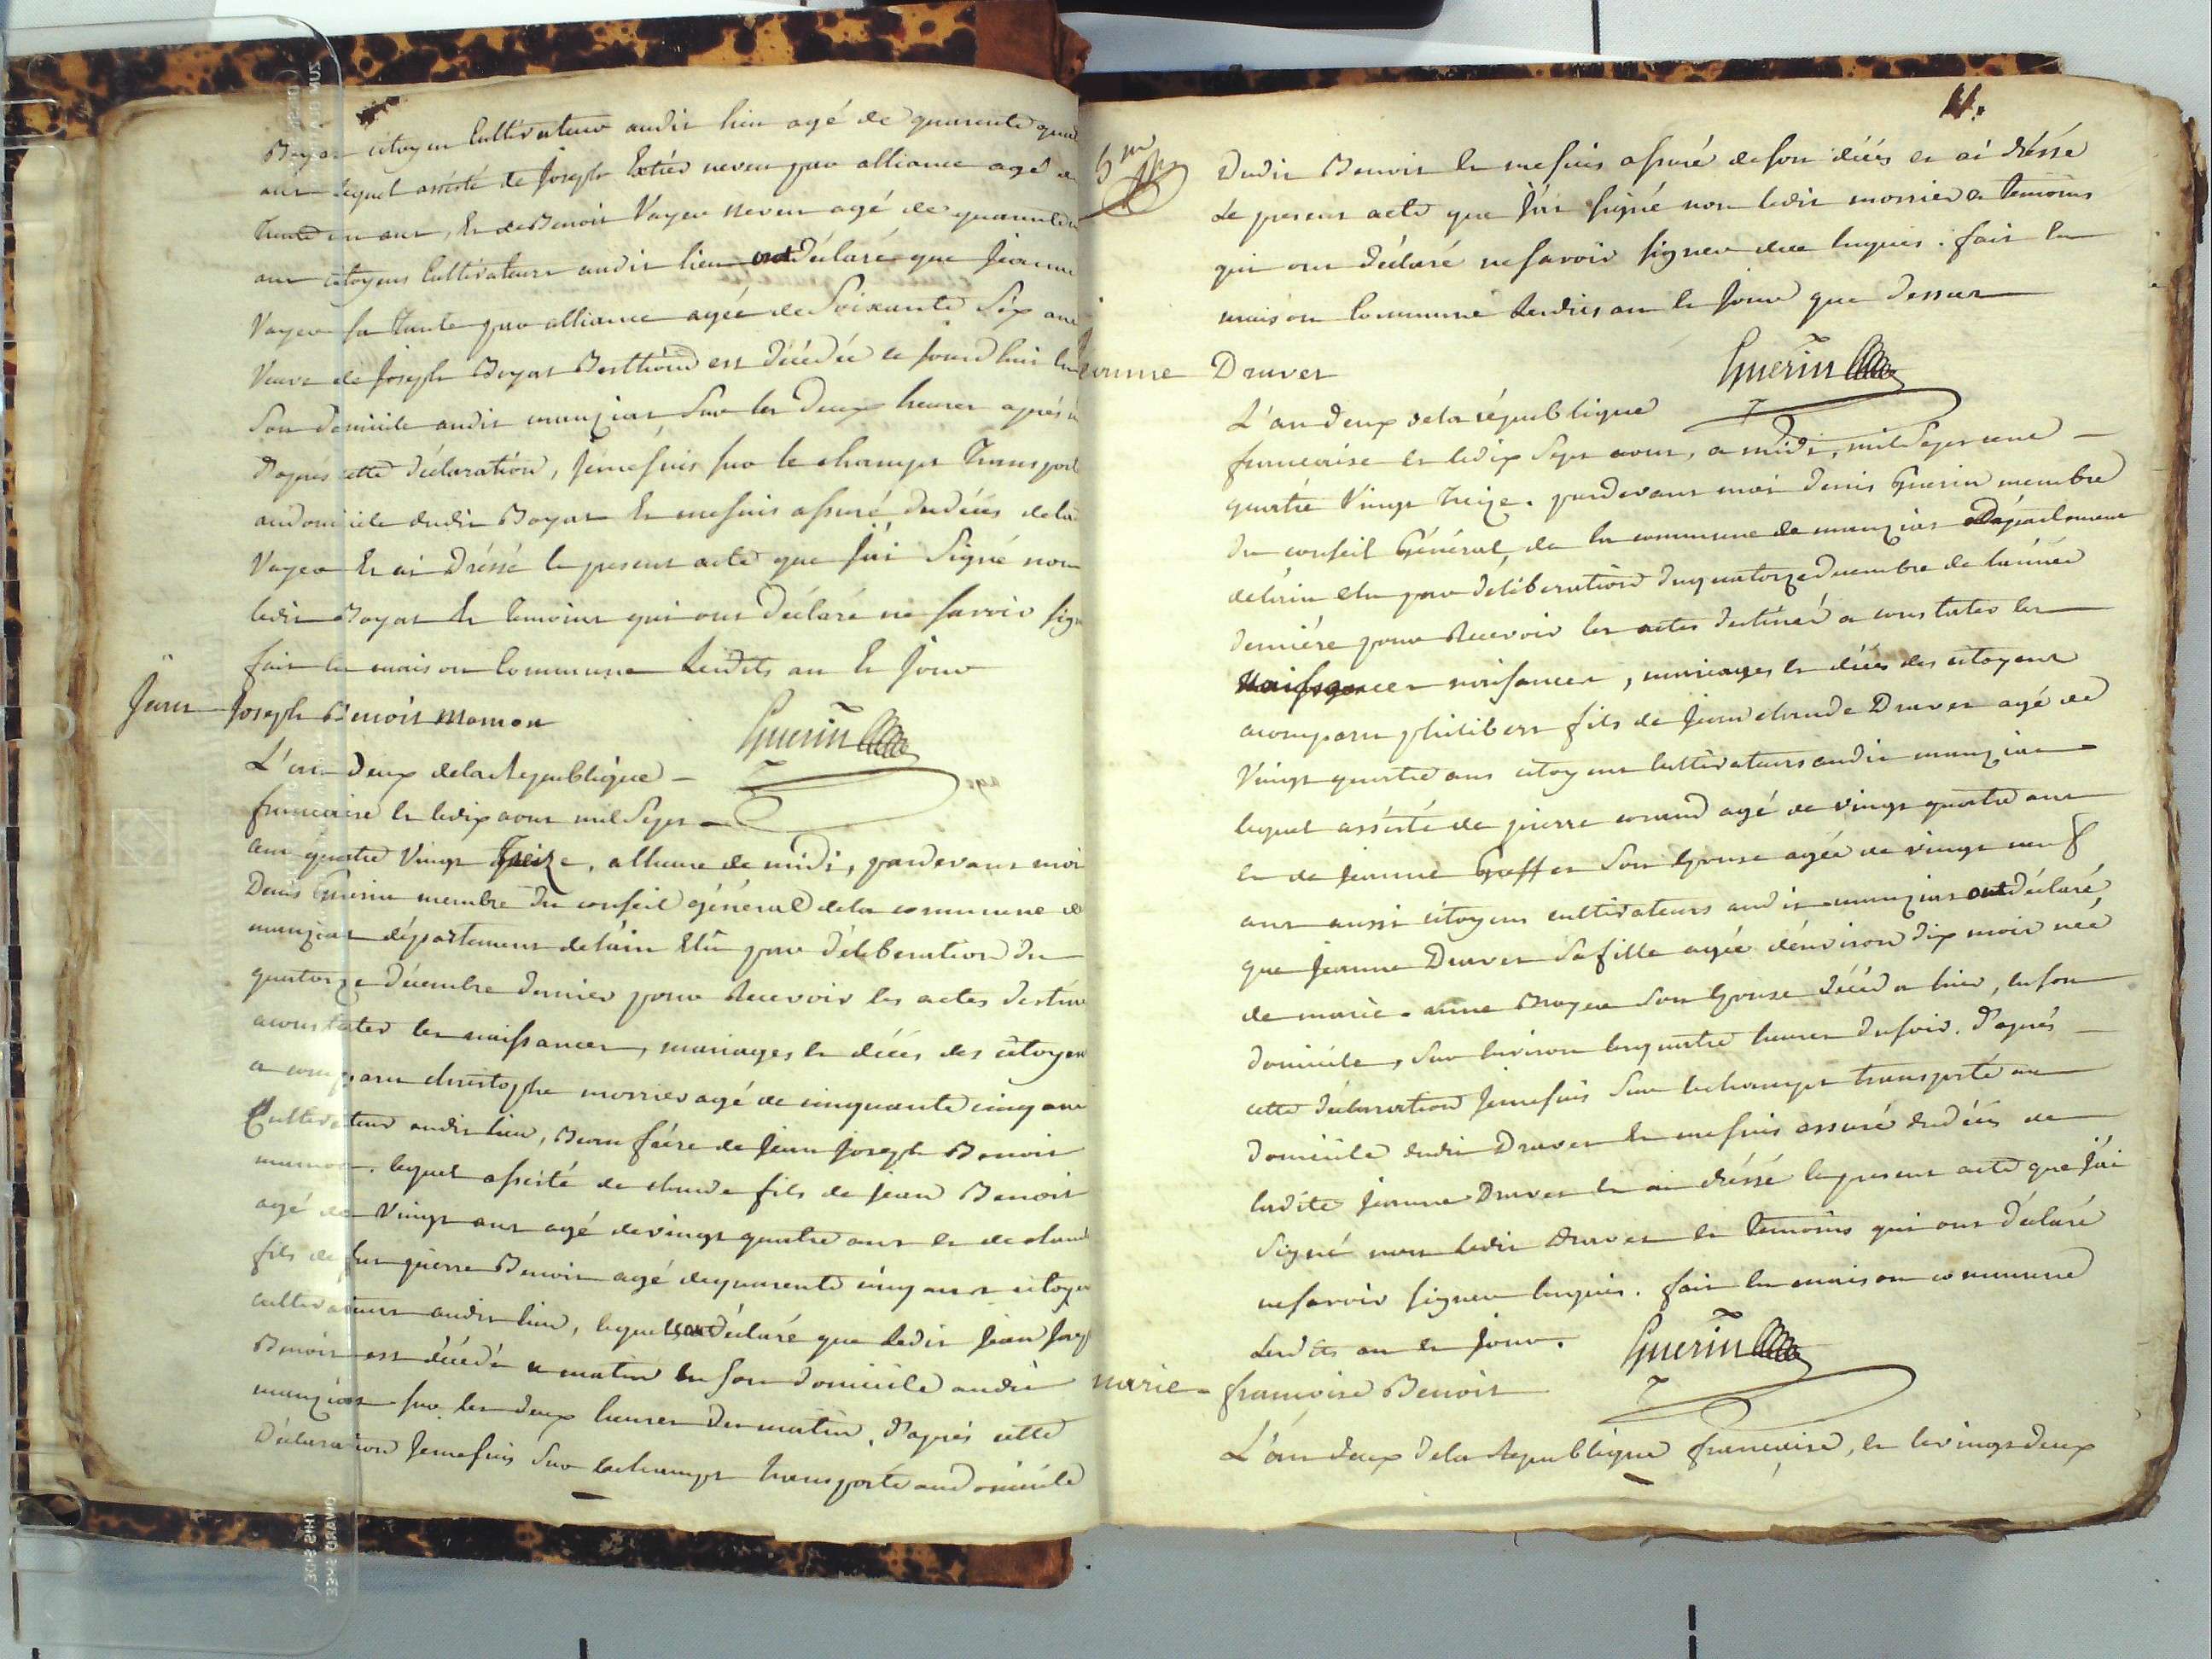 Boyat citoyen Cultivateur audit lieu agé de quarente quat
ans lequel assisté de Joseph neveu par alliance agé de
trente un ans, Et de Benoit Vayer neveu agé de quarente
ans citoyens Cultivateurs audit lieu ont Déclaré que Jeanne
Vayer sa tante par alliance agée de Soixante Six ans
Veuve de Joseph Boyat est décédée ce jourd'hui En
Son domicile audit manziat Sur les Deux heures après
D'après cette déclaration, Je me suis sur le champt Transport
au domicile dudit Boyat Et me suis assuré du décés de la
Vayer Et ai Dréssé le present acte que j'ai Signé non
ledit Boyat Et temoins qui ont Déclaré ne savoir sig
fait En maison Commune Lesdits an Et Jour
Jean Joseph Benoit Mamon
Guerin
L'an Deux de la Republique
francaise Et le dix aout mil Sept
cent quatre Vingt treize, a lheure de midi, pardevant moi
Denis Guerin membre du conseil général de la commune de
manziat département de l'ain Elû par déliberation du
quatorze décembre dernier pour Recevoir les actes destin
a constater les naissances, mariages Et décés des citoyens
a comparu christophe morrier agé de cinquante cinq ans
Cultivateur audit lieu, Beau frére de Jean Joseph Benoit
mamon. lequel assisté de claude fils de jean Benoit
agé de Vingt ans agé de vingt quatre ans Et de claud
fils de feu pierre Benoit agé de quarente cinq ans citoyen
cultivateurs audit lieu, lequels ont déclaré que Ledit Jean Josep
Benoit est décédé ce matin En son domicile audit
manziat sur les deux heures du matin, D'après cette
Déclaration Je me suis Sur le champt transporté au domicile
11.
Dudit Benoit Et me suis assuré de son décés Et ai dréssé
Le present acte que j'ai signé non ledit morrier & temoins
qui ont déclaré ne savoir signer de ce Enquis. fait En
maison Commune Lesdits an Et Jour que Dessus
Jeanne Druvet
Guerin
L'an deux de la république
francaise Et le dix Sept aout, a midi, mil Sept cent
quatre Vingt Treize. pardevant moi Denis Guerin membre
Du conseil Général de la commune de manziat Département
de l'ain Elu par déliberation du quatorze decembre de l'année
derniére pour Recevoir les actes destinés a constater les
Naissances naissances, mariages Et décés des citoyens
a comparu philibert fils de Jean claude Druvet agé de
Vingt quatre ans citoyens cultivateurs audit manziat
lequel assisté de pierre agé de vingt quatre ans
Et de Jeanne Greffet Son Epouse agée de vingt neuf
ans aussi citoyens cultivateurs audit manziat ont déclaré
que Jeanne Druvet Sa fille agée d'environ dix mois née
de marie-anne Broyer Son Epouse décéda hier, En son
domicile, Sur Environ les quatre heures du soir. D'après
cette déclaration Je me suis Sur le champt transporté au
Domicile dudit Druvet Et me suis assuré du décés de
ladite Jeanne Druvet Et ai dréssé le present acte que j'ai
Signé non ledit Druvet Et temoins qui ont déclaré
ne savoir signer Enquis. fait En maison commune
Lesdits an Et Jour.
Guerin
marie-francoise Benoit
L'an deux de la Republique francaise, Et le vingt deux